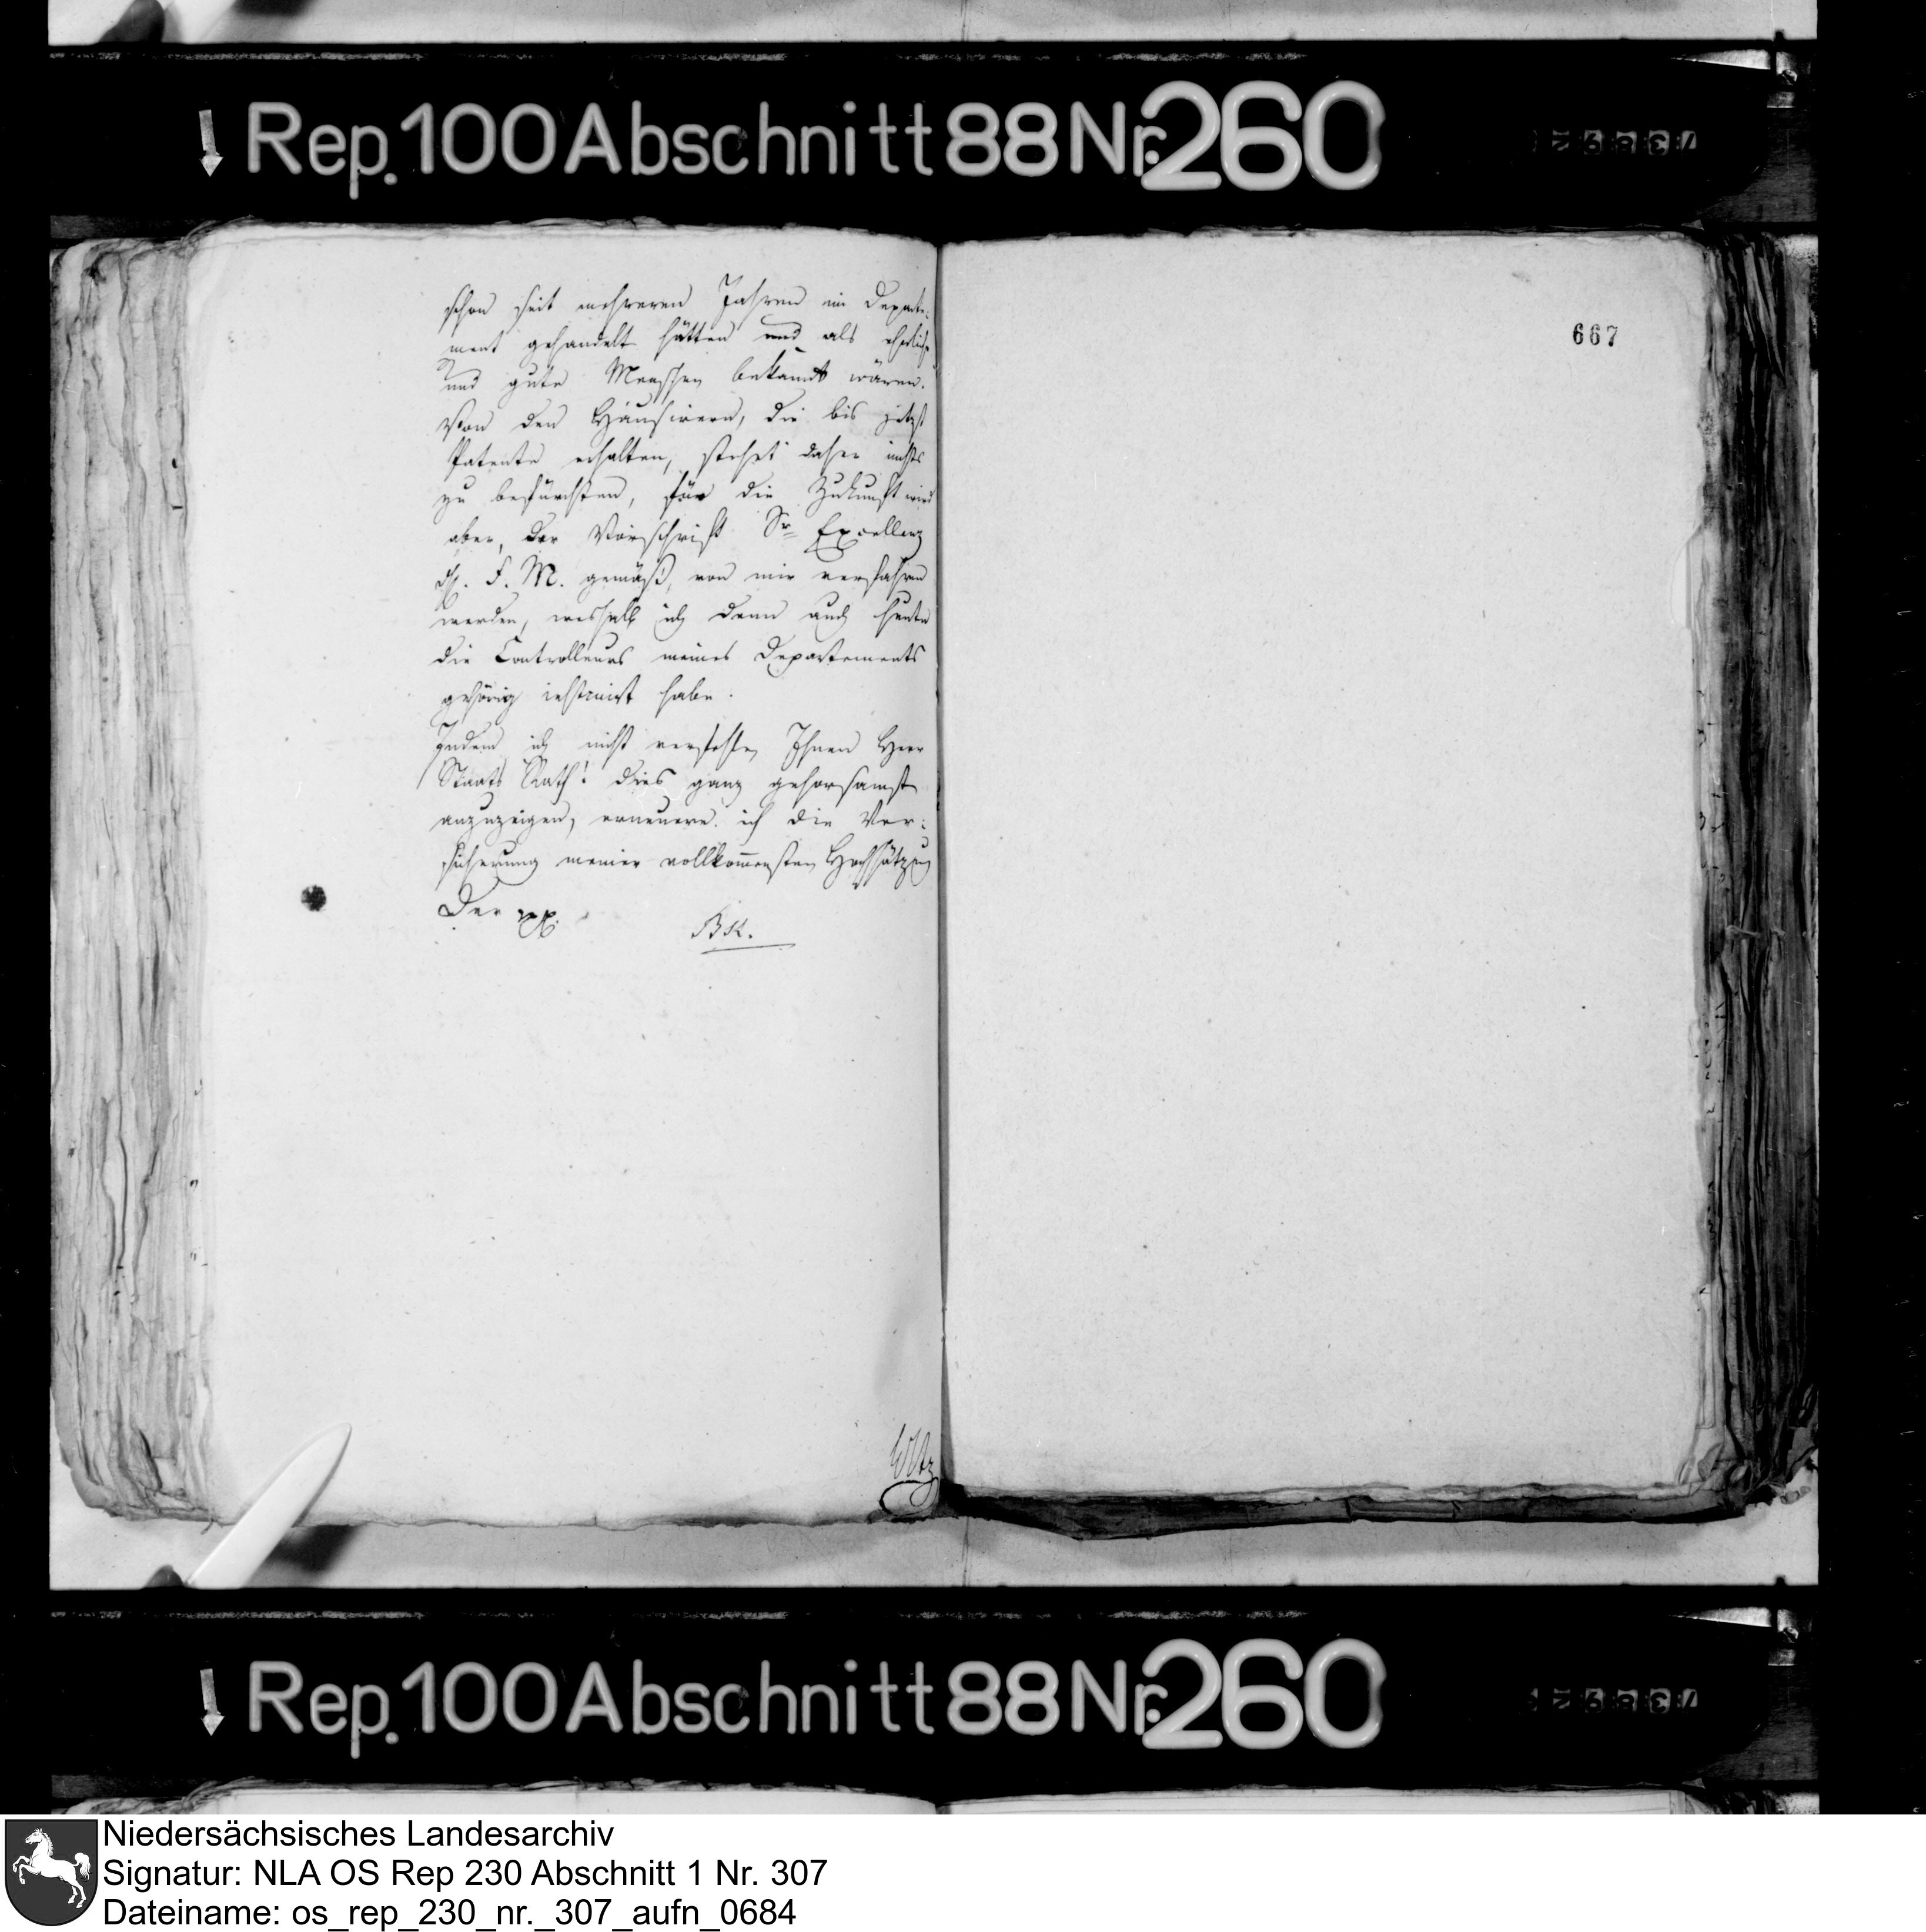 Rep. 100 Abschnitt 88 Nr. 260
schon seit mehreren Jahren im Departe-
ment gehandelt hätten und als ehrliche
und gute Menschen bekannt wären.
Von den Häusirern, die bis jetzt
Patente erhalten, stehet daher nichts
zu befürchten, für die Zukunft wird
aber, der Vorschrift Sr Excellenz
F. M. gemäß, von mir verfahren
werden, weshalb ich denn auch heute
die Controlleurs meines Departements
gehörig instruirt habe.
Indem ich nicht verfehle, Ihnen Herr
Staats Rath! dies ganz gehorsamst
anzuzeigen, erneuere ich die Ver-
sicherung meiner vollkom̅ensten Hochschätzung
Der
Bk.
667
Rep. 100 Abschnitt 88 Nr. 260
Niedersächsisches Landesarchiv
Signatur: NLA OS Rep 230 Abschnitt 1 Nr. 307
Dateiname: os_rep_230_nr._307_aufn_0684